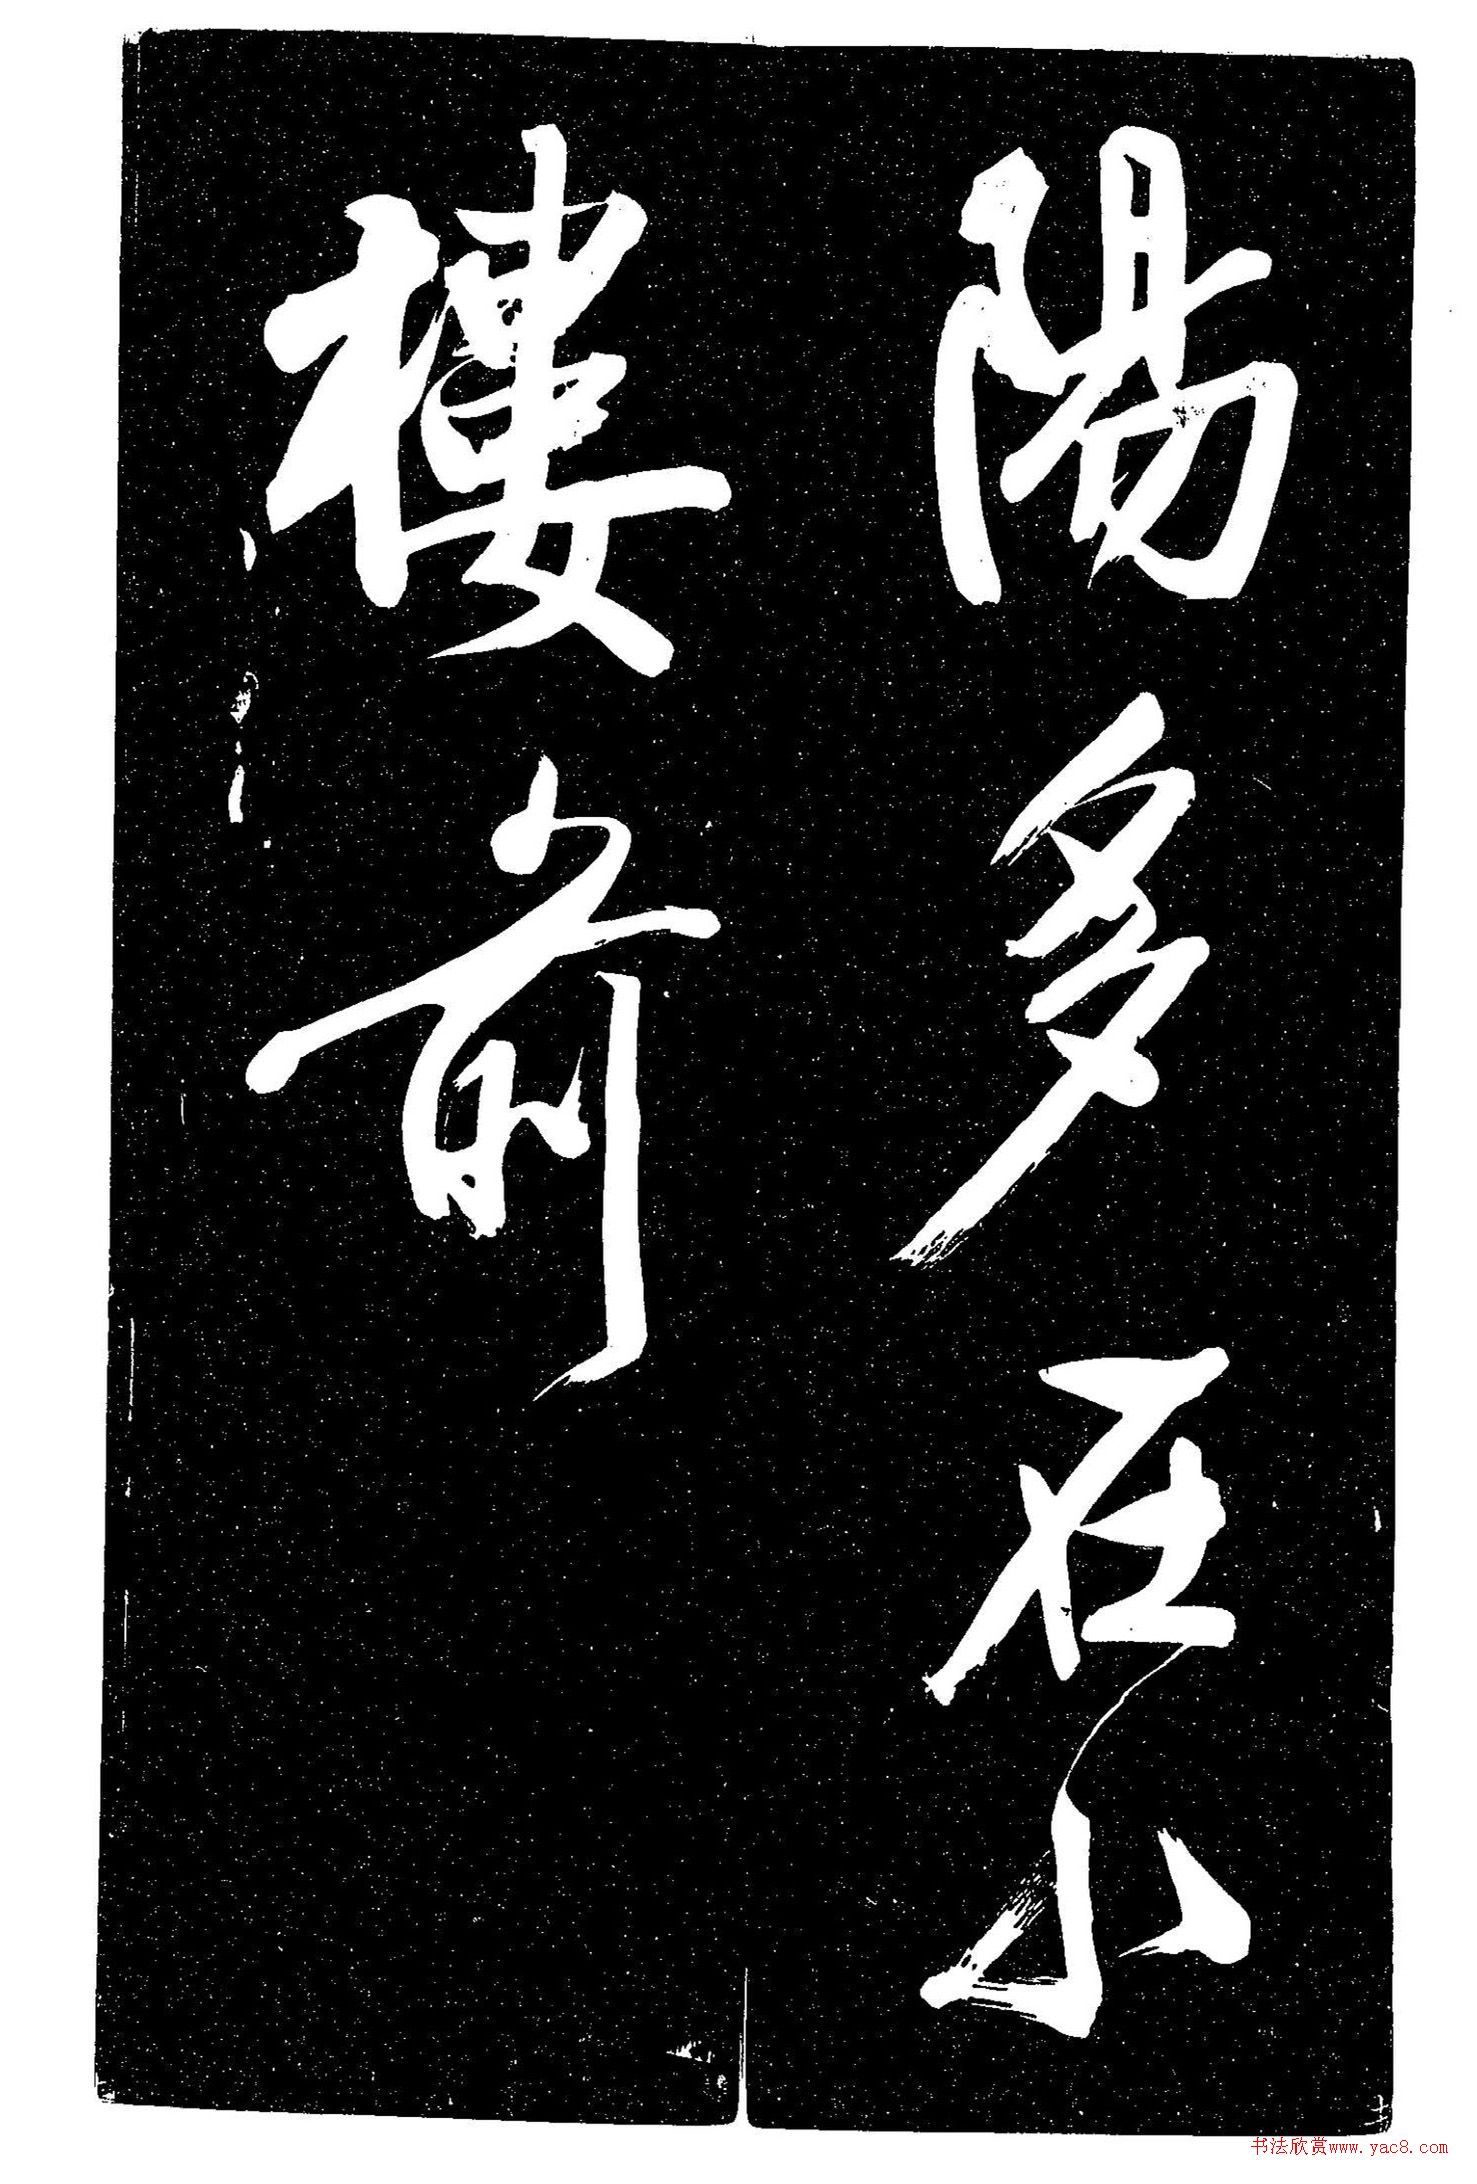 陽多在小
樓前
书法欣赏www.yac8.com